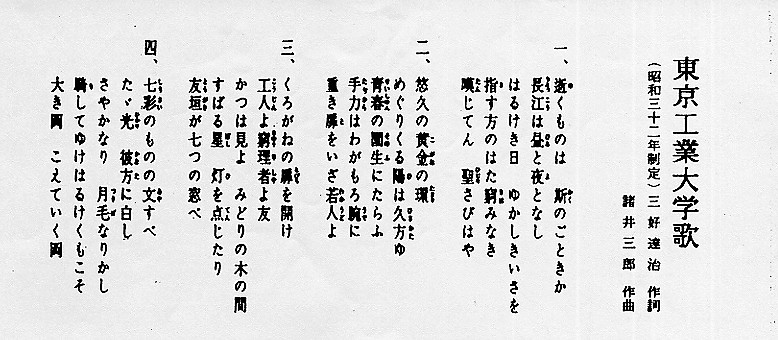 東京工業大学歌
(昭和三十二年制定) 三好達治 作詞
諸井三郎 作曲
一、逝くものは 斯のごときか
長江は昼と夜となし
はるけき日 ゆかしきいさを
指す方のはた窮みなき
嘆じてん 聖さびはや
二、悠久の黄金の環
めぐりくる陽は久方ゆ
青春の園生にたらふ
手力はわがもろ腕に
重き扉をいざ若人よ
三、くろがねの扉を開け
工人よ窮理者よ友
かつは見よ みどりの木の間
すばる星 灯を点じたり
友垣が七つの窓べ
四、七彩のものの文すべ
たゞ光 彼方に白し
さやかなり 月毛なりかし
騎してゆけはるけくもこそ
大き岡 こえていく岡